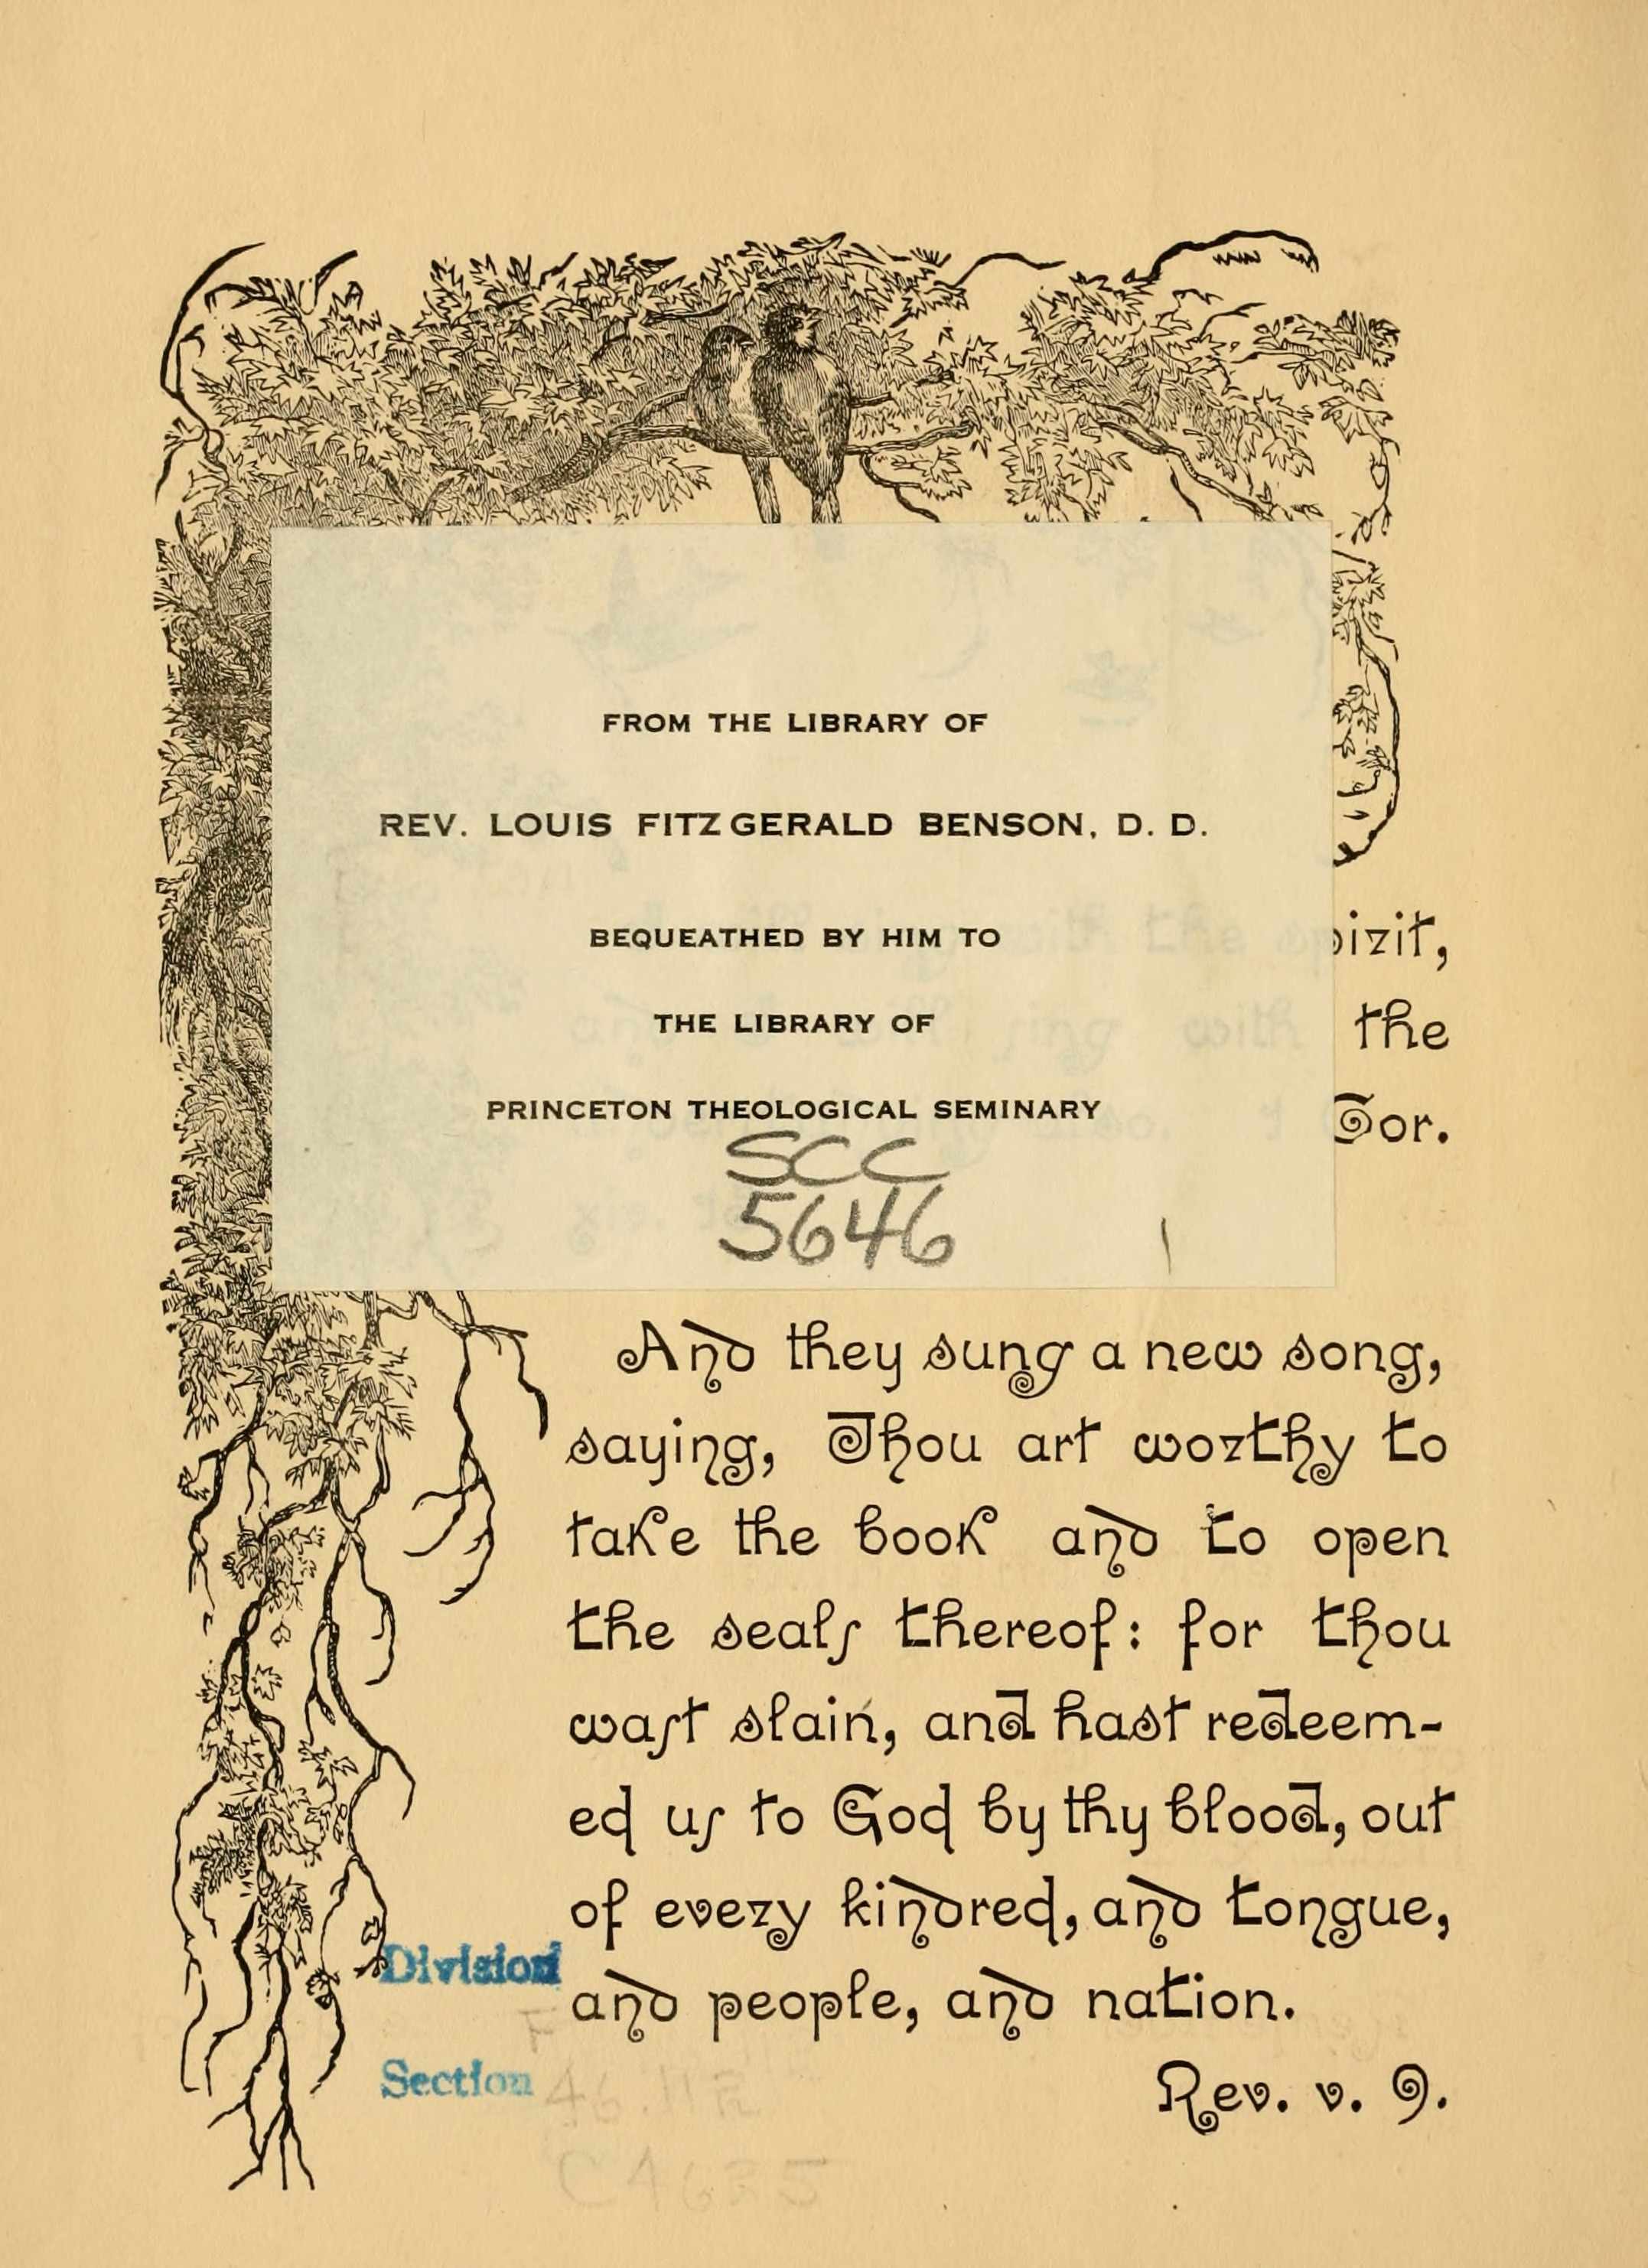 FROM THE LIBRARY OF
REV. LOUIS FITZGERALD BENSON, D. D.
BEQUEATHED BY HIM TO
THE LIBRARY OF
PRINCETON THEOLOGICAL SEMINARY
SCC
5646
the
Cor.
And they sung a new song,
saying, Thou art worthy to
take the book and to open
the seals thereof: for thou
wast slain, and hast redeem-
ed us to God by thy blood, out
of every kindred, and tongue,
and people, and nation.
Rev. v. 9.
Division
Section